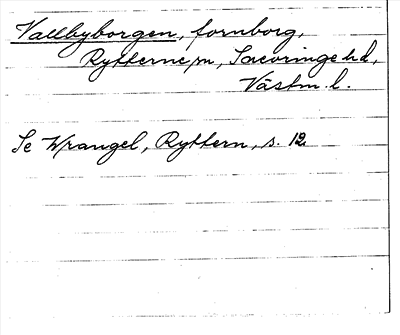 Vallbyborgen, fornborg,
Rytterne sn, Snevringe hd,
Västm. l.
Se Wrangel, Ryttern, s. 12